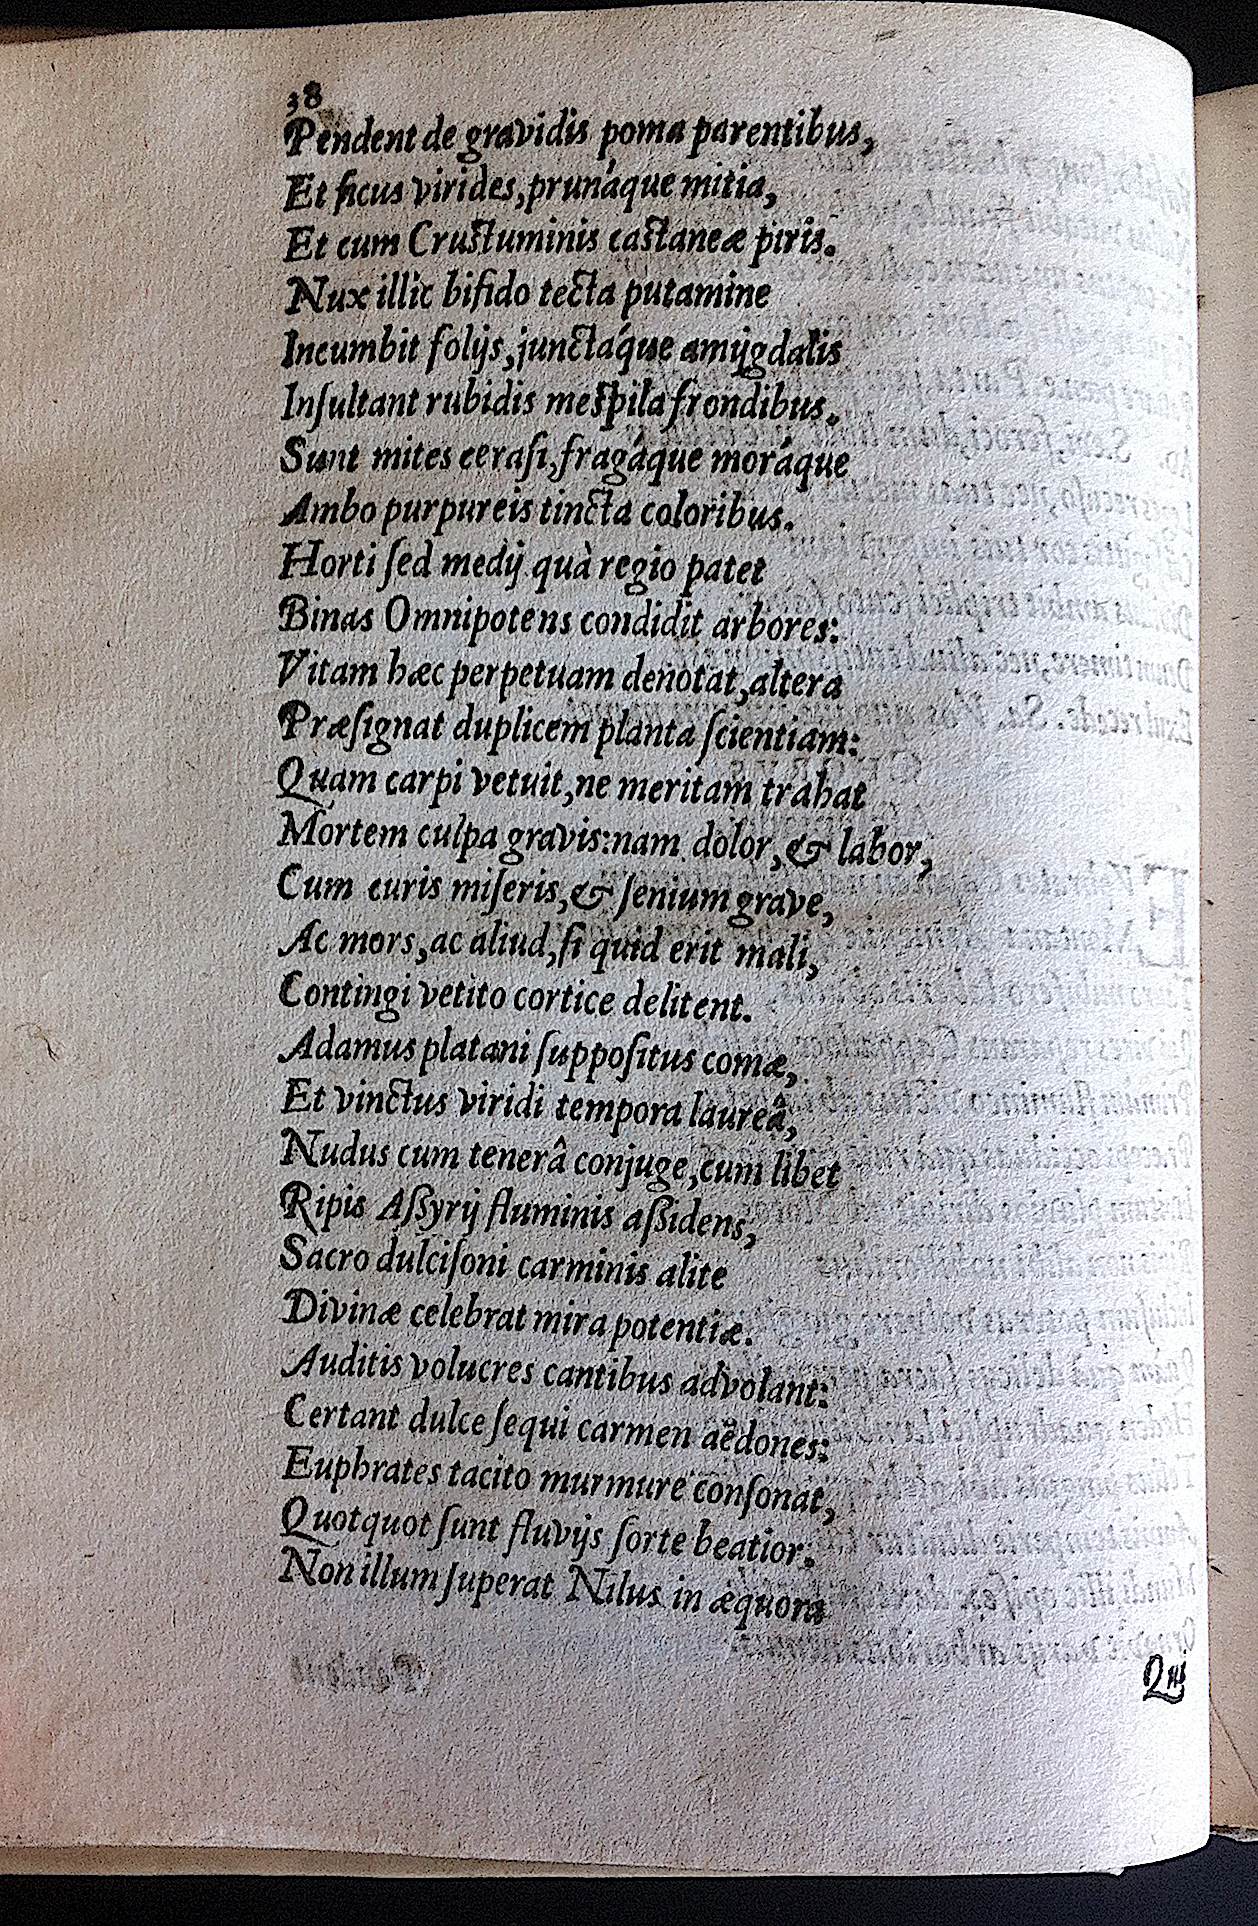 38
Pendent de gravidis poma parentibus,
Et ficus virides, prunáque mitia,
Et cum Crustuminis castaneæ piris.
Nux illic bifido tecta putamine
Incumbit folijs, junctáque amijgdalis
Inſultant rubidis meſpila frondibus.
Sunt mites ceraſi, fragáque moráque
Ambo purpureis tincta coloribus.
Horti ſed medij quà regio patet
Binas Omnipotens condidit arbores:
Vitam hæc perpetuam denotat, altera
Præſignat duplicem planta ſcientiam:
Quam carpi vetuit, ne meritam trahat
Mortem culpa gravis: nam dolor, & labor,
Cum curis miſeris, & ſenium grave,
Ac mors, ac aliud, ſi quid erit mali,
Contingi vetito cortice delitent.
Adamus platani ſuppoſitus comæ,
Et vinctus viridi tempora laureâ,
Nudus cum tenerâ conjuge, cum libet
Ripis Aſſyrij fluminis aſſidens,
Sacro dulciſoni carminis alite
Divinæ celebrat mira potentiæ.
Auditis volucres cantibus advolant:
Certant dulce ſequi carmen aëdones:
Euphrates tacito murmure conſonat,
Quotquot ſunt fluvijs ſorte beatior:
Non illum ſuperat Nilus in æquora